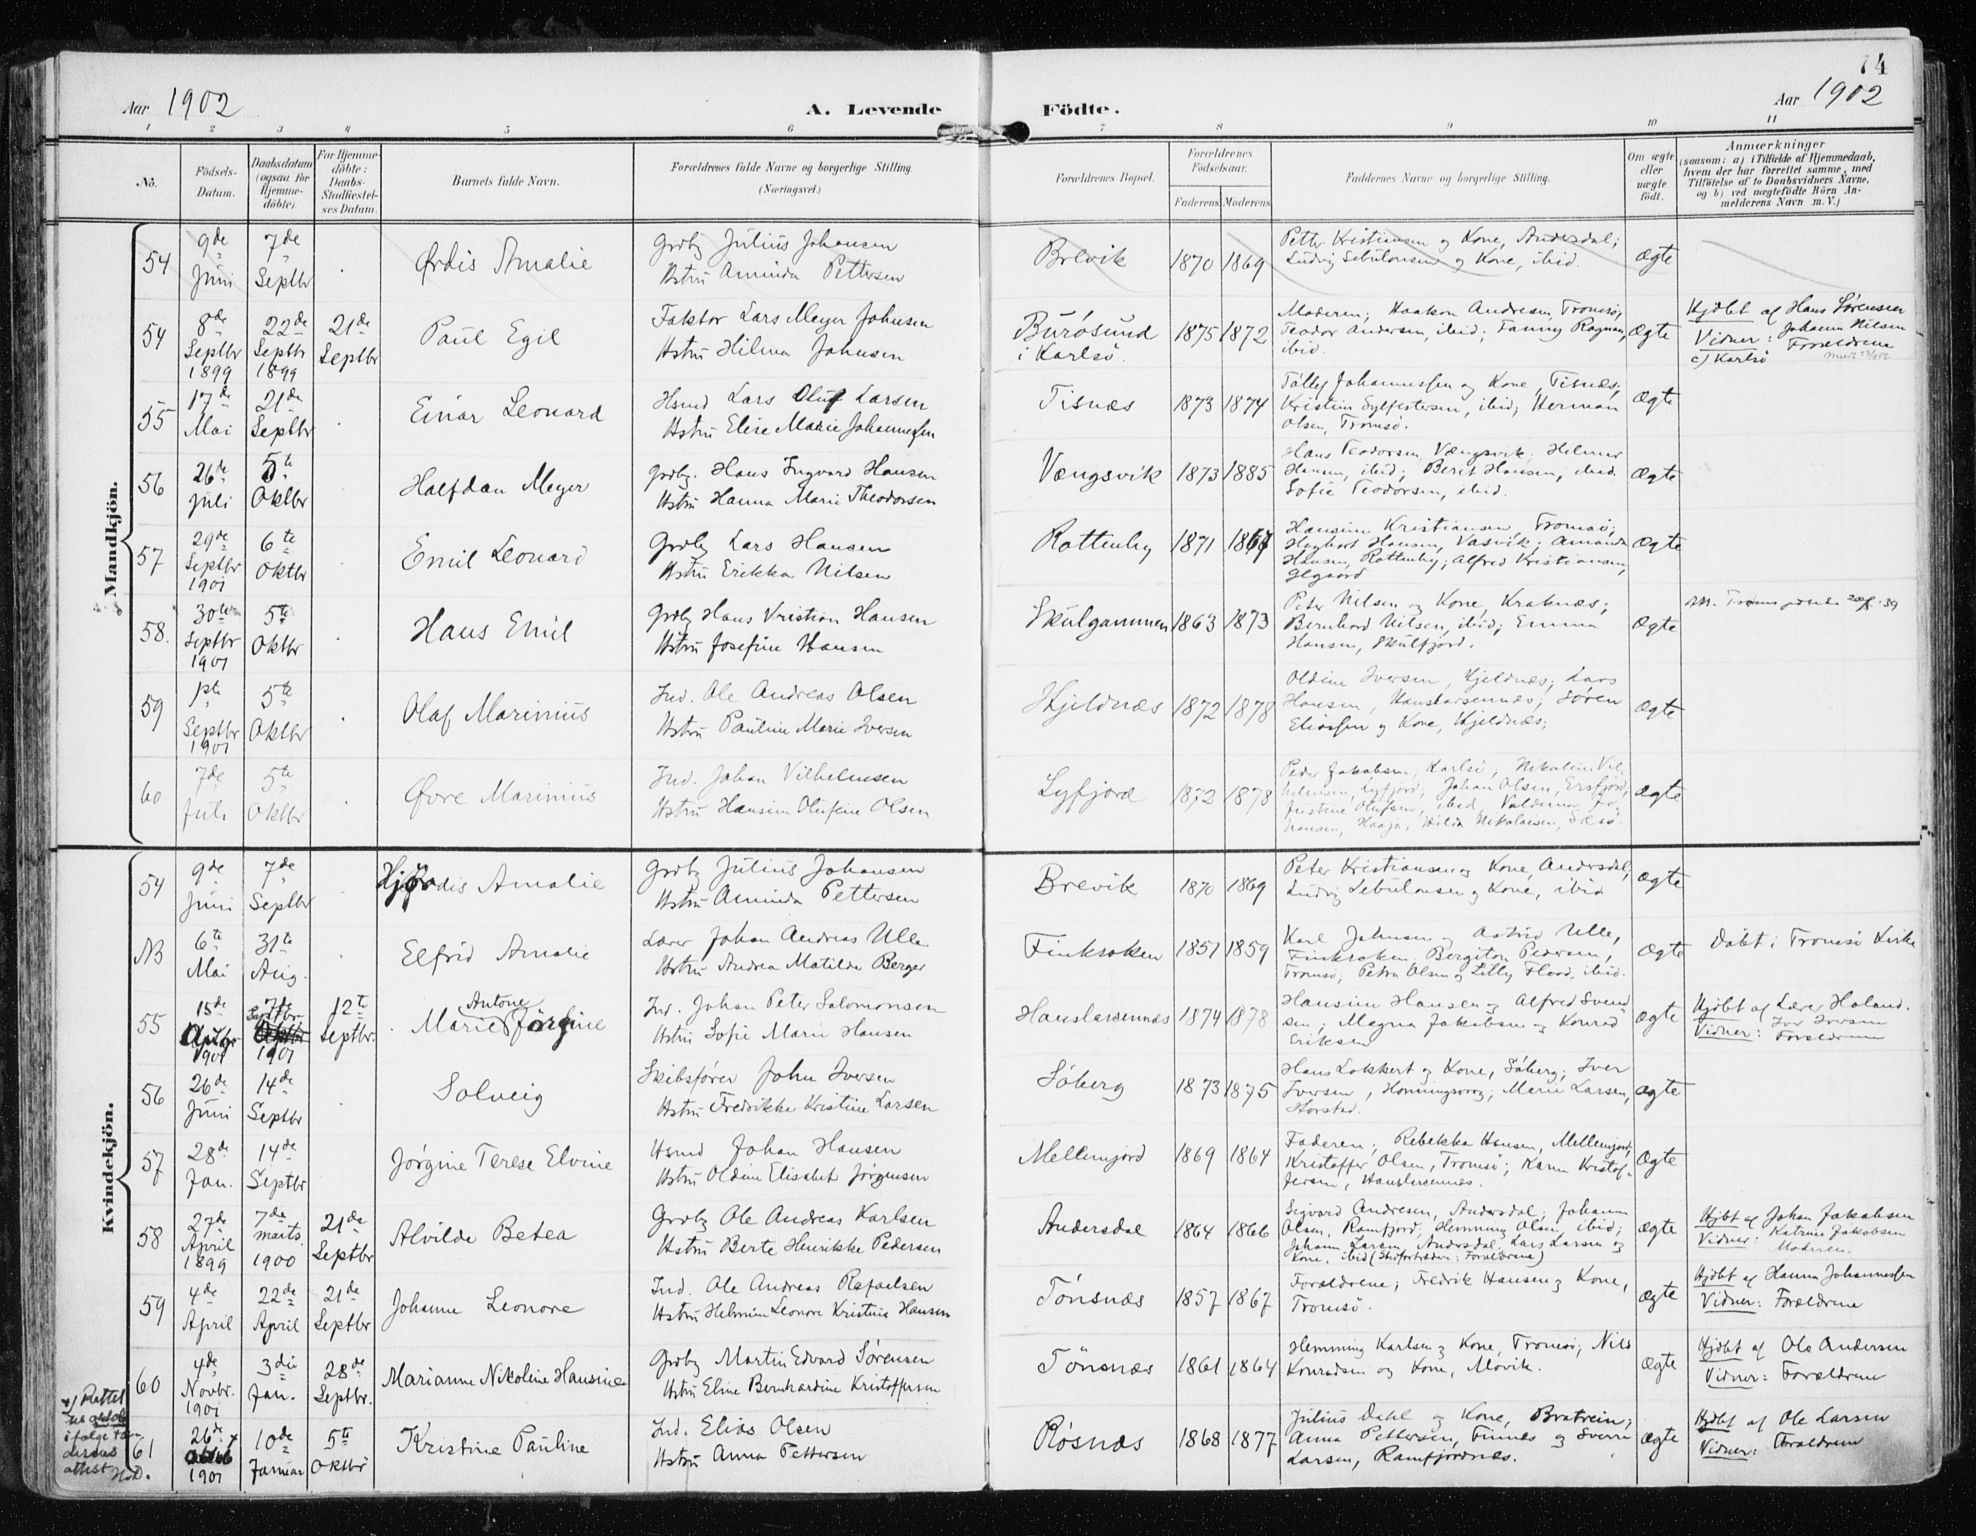 74
Aar 1902 A. Levende Födte. Aar 1902
1 2 3 4 5 6 7 8 9 10 11
No. Födsels-Datum. Daabsdatum (ogsaa for Hjemme-döbte). For Hjemme-döbte: Daabs-Stadfæstel-ses Datum. Barnets fulde Navn. Forældrenes fulde Navne og borgerlige Stilling. (Næringsvei.) Forældrenes Bopæl. Forældrenes Födselsaar. Faderens Moderens Faddernes Navne og borgerlige Stilling. Om ægte eller uægte födt. Anmærkninger (saasom: a) i Tilfælde af Hjemmedaab, hvem der har forrettet samme, med Tilföielse af to Daabsvidners Navne, og b) ved uægtefödte Börn An-melderens Navn m. V.)
Mandkjön.
54 9de Juni 7de Septbr Ørdis Amalie Grdbr Julius Johansen
Hstru Aminda Pettersen Brevik 1870 1869 Petter Kristiansen og Kone, Andersdal;
Ludvig Sebulonsen og Kone, ibid. Ægte
54 8de Septbr 1899 22de Septbr 1899 21de Septbr Paul Egil Faktor Lars Meyer Johnsen
Hstru Hilma Johnsen Burøsund i Karlsø. 1875 1872 Moderen; Haakon Andresen, Tromsø;
Teodor Andersen, ibid; Fanny Ragnan,
ibid. Ægte Hjdbt af Hans Sørensen
Vidner: Johann Nilsen
Forældrene
c) Karlsø
55 17de Mai 21de Septbr Einar Leonard Hsmd Lars Oluf Larsen
Hstru Elise Marie Johannessen Tisnæs 1873 1874 Tølløf Johannessen og Kone, Tisnæs;
Kristin Sylfestersen, ibid; Herman
Olsen, Tromsø. Ægte
56 26de Juli 5te Oktbr Halfdan Meyer Grdbr. Hans Ingvard Hansen
Hstru Hanna Marie Theodorsen Vængsvik 1873 1885 Hans Teodorsen, Vængsvik; Helmer
Hansen, ibid; Berit Hansen, ibid.
Sofie Teodorsen, ibid. Ægte
57 29de Septbr 1901 6te Oktbr Emil Leonard Grdbr Lars Hansen
Hstru Erikka Nilsen Rottenby 1871 1867 Hansine Kristiansen, Tromsø;
Heghart Hansen, Vasvik; Amanda
Hansen, Rottenby; Alfred Kristiansen, Ægte
58. 30te Septbr 1901 5te Oktbr Hans Emil Grdbr Hans Kristian Hansen
Hstru Josefine Hansen Skulgammen 1863 1873 Peter Nilsen og Kone, Kraknæs;
Bernhard Nilsen, ibid; Emma
Hansen, Skulfjord. Ægte
59 1ste Septbr 1901 5te Oktbr Olaf Marinius Ind. Ole Andreas Olsen
Hstru Pauline Marie Iversen Hjeldnæs 1872 1878 Oldine Iversen, Hjeldnæs; Lars
Hansen, Hanslarsennæs; Søren
Eliassen og Kone, Hjeldnæs; Ægte
60 7de Juli 5te Oktbr Øvre Marinius Ind. Johan Vilhelmsen
Hstru Hansine Olufine Olsen Lyfjord 1872 1878 Peder Jakobsen, Karlsø; Nikoline Vil-
helmsen, Lyfjord; Johan Olsen, Ersfjord,
Justine Olufsen, ibid, Valdemar Jo-
hansen, Haaja, Hilda Nikolaisen, Sæsø. Ægte
Kvindekjön.
54 9de Juni 7de Septbr Hjørdis Amalie Grdbr Julius Johansen
Hstru Aminda Pettersen Brevik 1870 1869 Peter Kristiansen og Kone, Andersdal,
Ludvig Sebulonsen og Kone, ibid Ægte
NB 6te Mai 31te Aug. Elfrid Amalie Lærer Johan Andreas Ulle
Hstru Andrea Matilde Berger Finkroken 1851 1859 Karl Johnsen og Astrid Ulle,
Finkroken; Bergiton Pedersen,
Tromsø; Petra Olsen og Lilly Flood, ibid. Ægte Døbt i Tromsø Kirke
55 15de 1901 7de Septbr. 1901 12te Septbr. Marie Antone Jørgine Ind. Johan Peter Salomonsen
Hstru Sofie Marie Hansen Hanslarsennæs 1874 1878 Hansine Hansen og Alfred Svend-
sen; Magna Jakobsen og Konrad
Eriksen Ægte Hjdbt af Lærer Holand.
Vidner: Iver Iversen
Forældrene
56 26de Juni 14de Septbr Solveig Skibsfører John Iversen
Hstru Fredrikke Kristine Larsen Søberg 1873 1875 Hans Lokkert og Kone, Søberg; Iver
Iversen, Honningsvog; Marie Larsen,
Horstad. Ægte
57 28de Jan. 14de Septbr Jørgine Terese Elvine Hsmd Johan Hansen
Hstru Oldine Elisabet Jørgensen Mellemjord 1869 1864 Faderen; Rebekka Hansen, Mellemjord;
Kristoffer Olsen, Tromsø; Karen Kristof-
fersen, Hanslarsennæs. Ægte
58 27de April 1899 7de marts. 1900 21de Septbr Alvilde Betea Grdbr Ole Andreas Karlsen
Hstru Berte Henrikke Pedersen Andersdal 1864 1866 Sigvard Andresen, Andersdal; Johann
Olsen, Ramfjord; Hemming Olsen, ibid;
Johann Larsen, Andersdal; Lars Larsen og
Kone, ibid (Stedfortræder: Forældrene) Ægte Hjdbt af Johan Jakobsen
Vidner: Katrine Jakobsen
Moderen.
59 4de April 22de April 21de Septbr Johanne Leonore Ind. Ole Andreas Rafaelsen
Hstru Helmine Leonore Kristine Hansen Tønsnæs 1857 1867 Forældrene; Fredrik Hansen og Kone,
Tromsø. Ægte Hjdbt af Hanna Johannessen
Vidner: Forældrene
60 4de Novbr. 1901 3die Jan. 28de Septbr. Marianne Nikoline Hansine Grdbr Martin Edvard Sørensen
Hstru Eline Bernhardine Kristoffersen Tønsnæs 1861 1864 Hemming Karlsen og Kone, Tromsø; Nils
Konradsen og Kone, Movik. Ægte Hjdbt af Ole Andersen
Vidner: Forældrene
61 26de x 1901 10de Januar 5te Oktbr Kristine Pauline Ind. Elias Olsen
Hstru Anna Pettersen Røsnæs 1868 1877 Julius Dahl og Kone, Bratrein;
Anna Pettersen, Finnes og Sverre
Larsen, Ramfjordnæs. Ægte Hjdbt af Ole Larsen
Vidner: Forældrene
x) Rettet
ifølge
attest